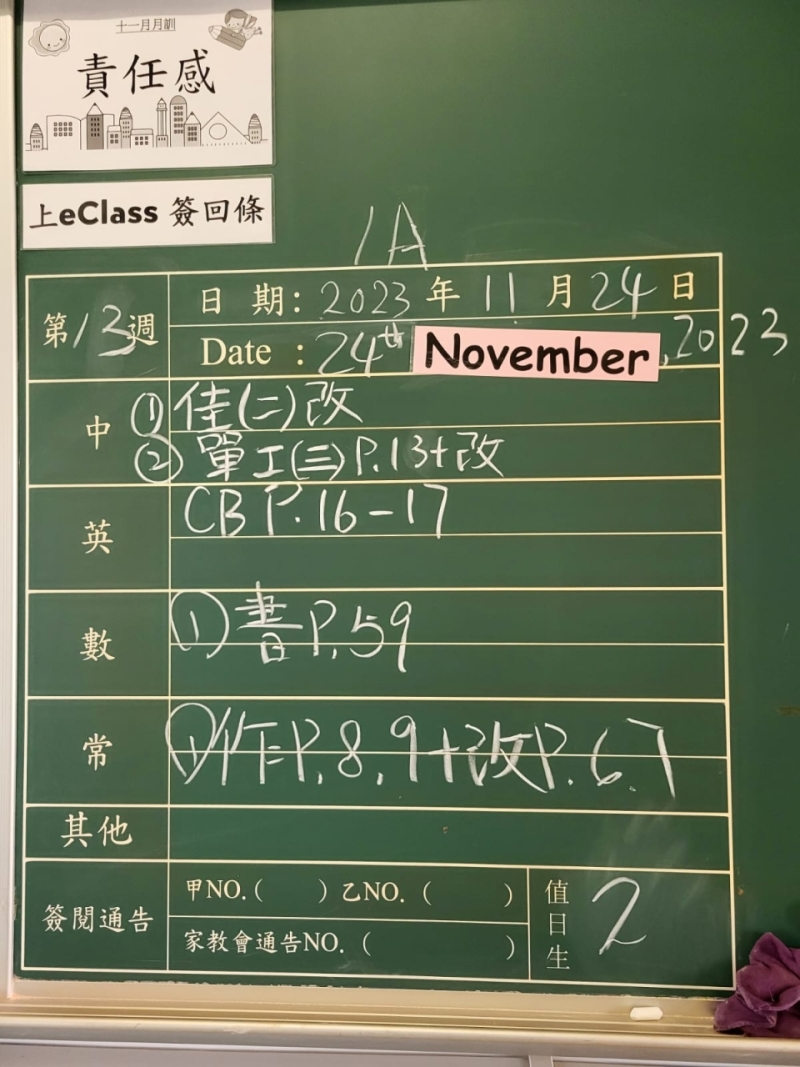 十一月月訓
責任感
上eClass 簽回條
1A
第13週
日期:2023年11月24日
Date : 24th November, 2023
中 ① 佳(二)改
② 單工(三)P.13+改
英 CB P.16-17
數 ① 書P.59
常 ① 作P.8,9+改P.6,7
其他
簽閱通告 甲NO.( ) 乙NO.( )
家教會通告NO.( )
值日生 2